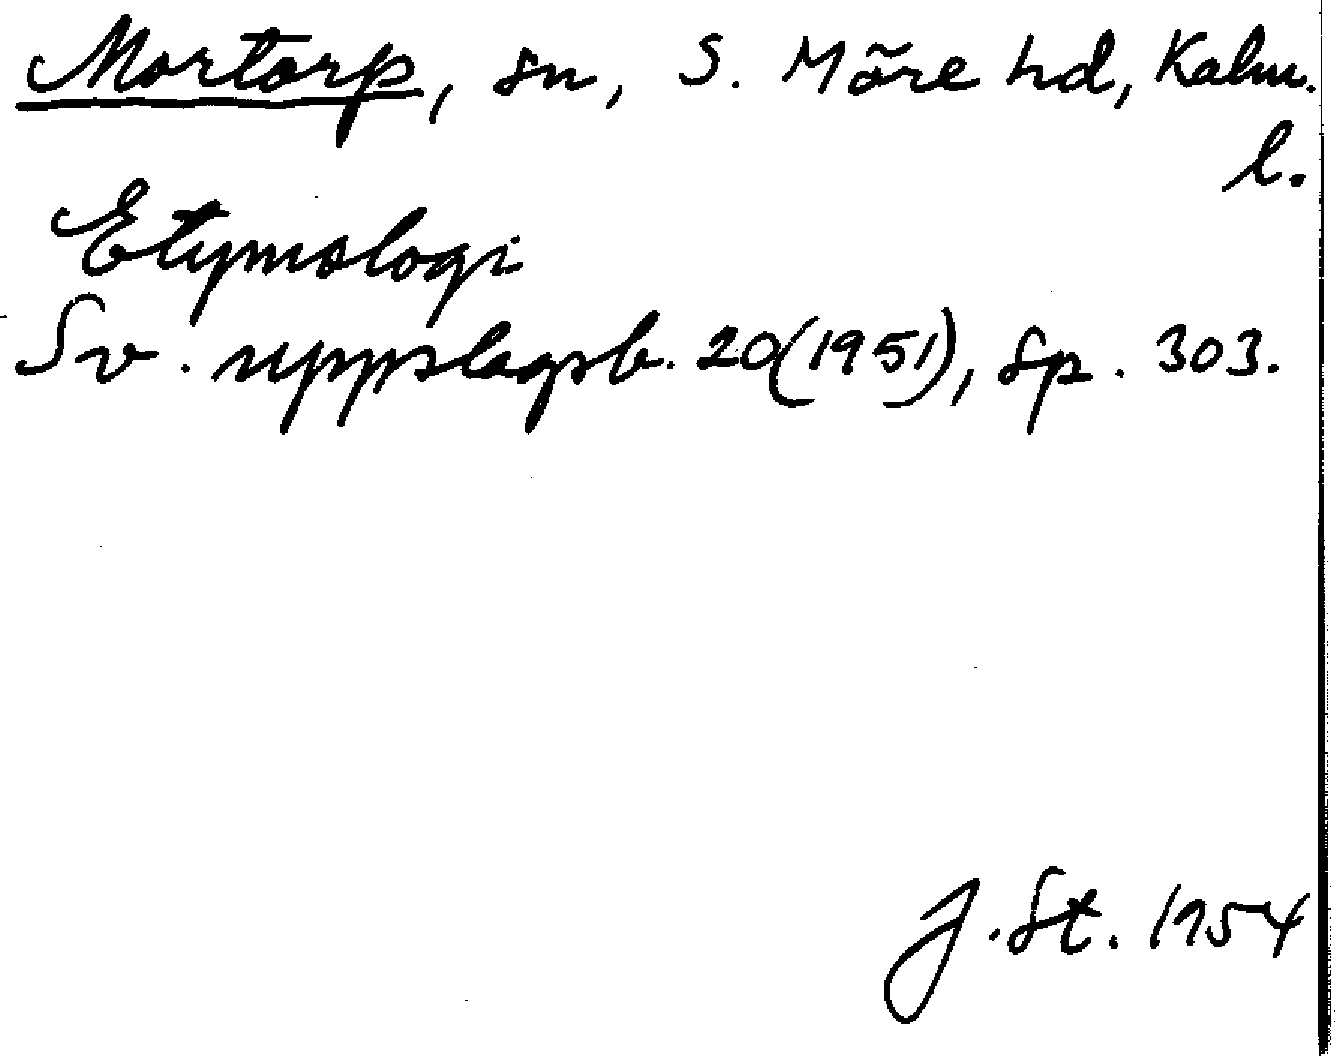 Mortorp, sn, S. Möre hd, Kalm.
l.
Etymologi
Sv. uppslagsb. 20(1951), sp. 303.
J. St. 1954